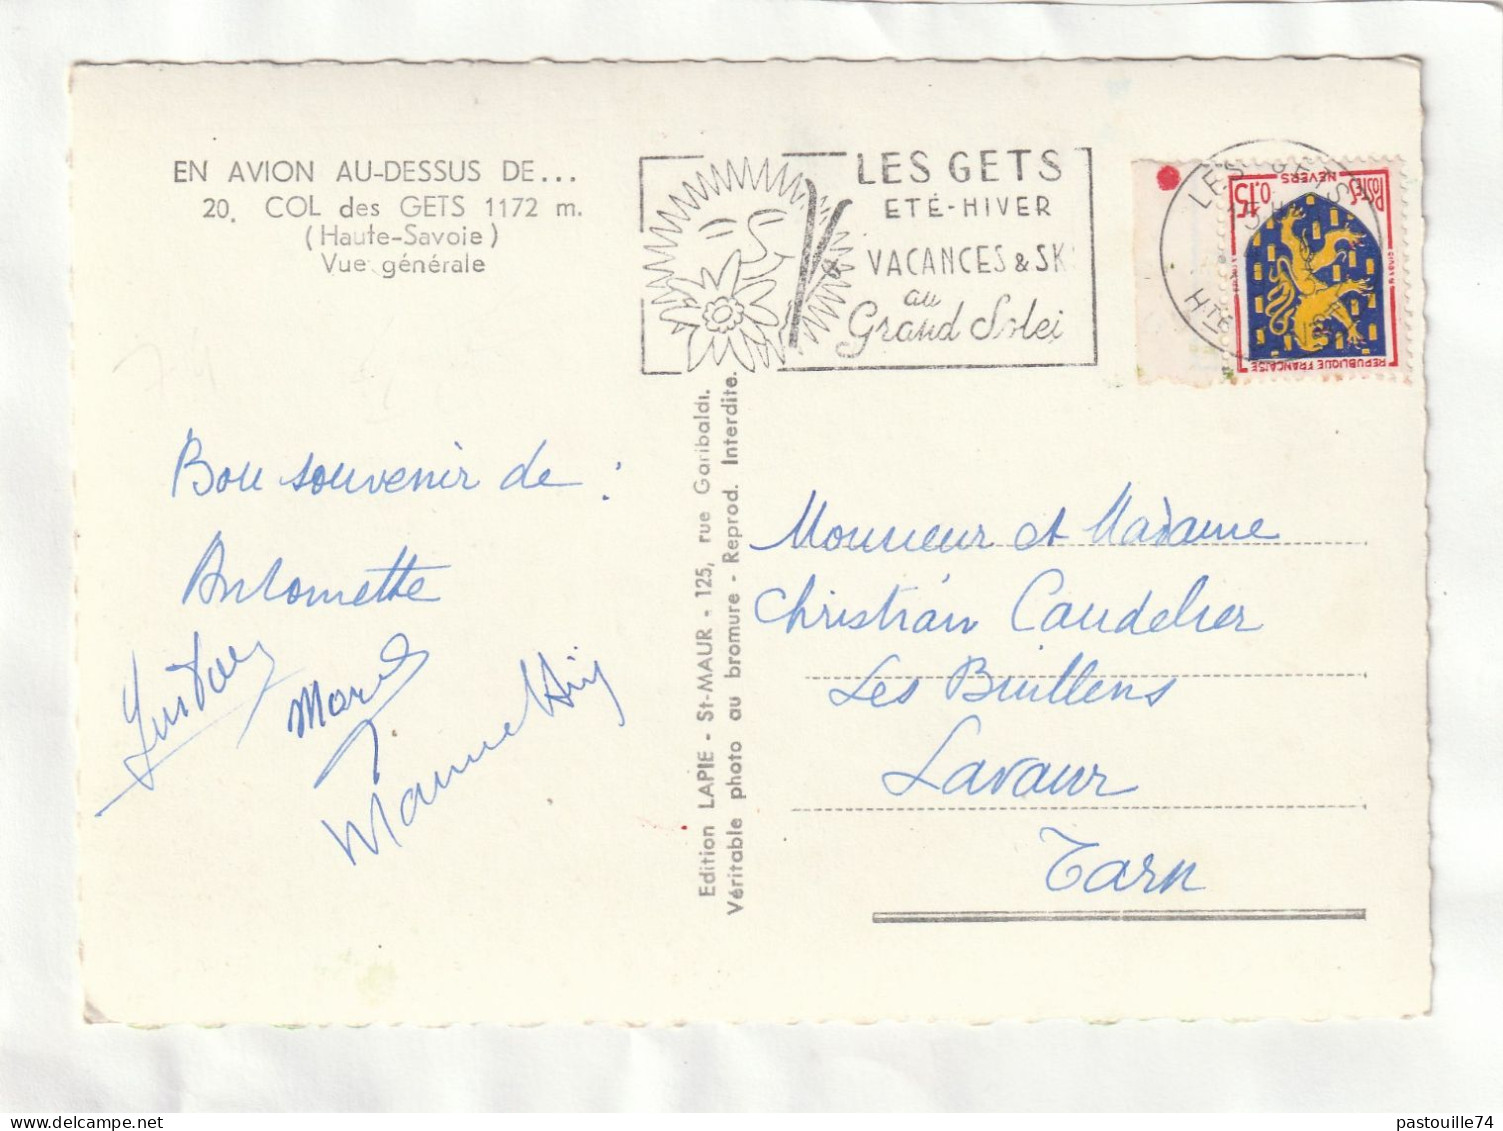 EN AVION AU-DESSUS DE...
20. COL des GETS 1172 m.
(Haute-Savoie)
Vue générale
LES GETS
ETÉ-HIVER
VACANCES & SK
au
Grand Solei
LES GETS
15 H
Hte
0,15
Postes
NEVERS
REPUBLIQUE FRANÇAISE
Bon souvenir de :
Antoinette
Gustave
Marc
Edition LAPIE - St-MAUR - 125, rue Garibaldi.
Véritable photo au bromure - Reprod. Interdite.
Monsieur et Madame
Christian Caudelier
Les
Lavaur
Tarn
pastouille74